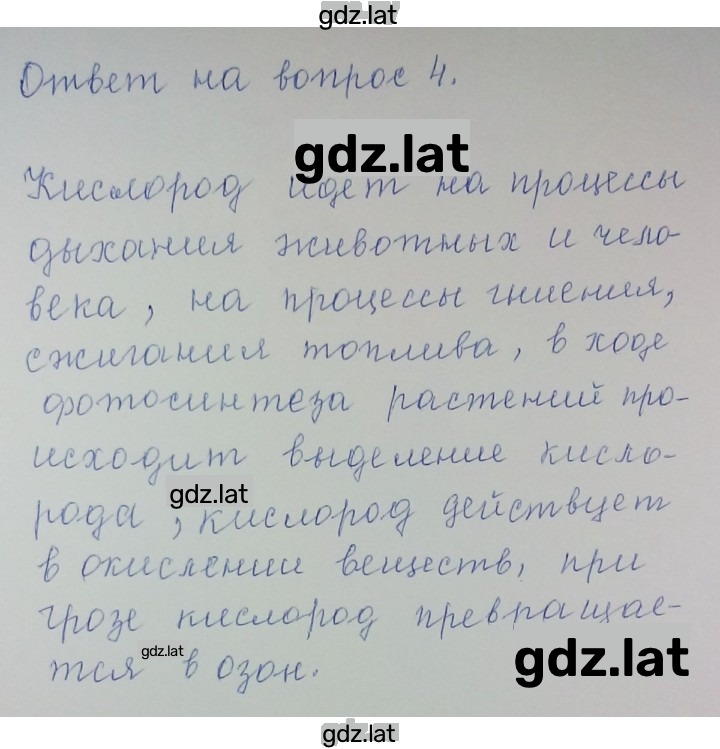 gdz.lat
Ответ на вопрос 4.
gdz.lat
Кислород идет на процессы
дыхания животных и чело-
века, на процессы гниения,
сжигания топлива, в ходе
фотосинтеза растений про-
исходит выделение кисло-
gdz.lat
рода, кислород действует
в окислении веществ, при
грозе кислород превращае-
тся в озон.
gdz.lat
gdz.lat
gdz.lat